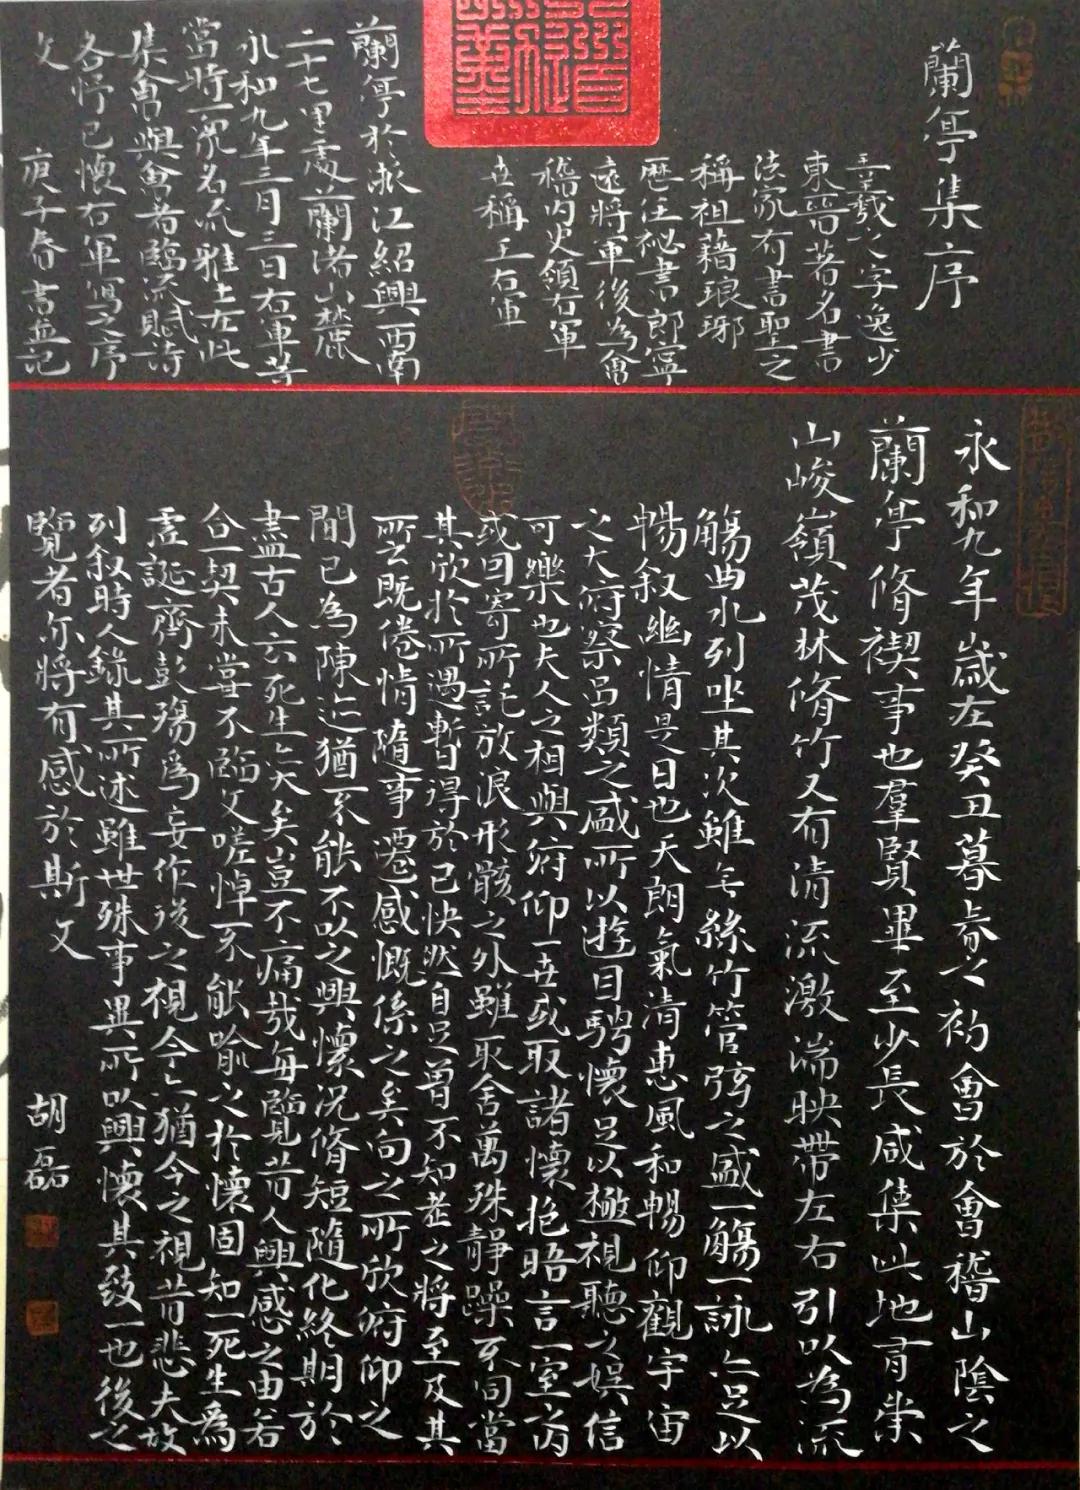 蘭亭集序
王羲之字逸少
東晉著名書
法家有書聖之
稱祖藉琅琊
歷任祕書郎寧
遠將軍後為會
稽內史領右軍
世稱王右軍
蘭亭於浙江紹興西南
二十七里處蘭渚山麓
永和九年三月三日右軍等
當時一衆名流雅士在此
集會與會者臨流賦詩
各抒己懷右軍寫之序
文 庚子春書並記
永和九年歲在癸丑暮春之初會於會稽山陰之
蘭亭脩禊事也羣賢畢至少長咸集此地有崇
山峻嶺茂林脩竹又有清流激湍映帶左右引以為流
觴曲水列坐其次雖無絲竹管弦之盛一觴一詠亦足以
暢叙幽情是日也天朗氣清惠風和暢仰觀宇宙
之大俯察品類之盛所以遊目騁懷足以極視聽之娛信
可樂也夫人之相與俯仰一世或取諸懷抱晤言一室之內
或因寄所託放浪形骸之外雖取舍萬殊靜躁不同當
其欣於所遇暫得於己快然自足曾不知老之將至及其
所之既倦情隨事遷感慨係之矣向之所欣俯仰之
間已為陳迹猶不能不以之興懷況脩短隨化終期於
盡古人云死生亦大矣豈不痛哉每覽昔人興感之由若
合一契未嘗不臨文嗟悼不能喻之於懷固知一死生為
虛誕齊彭殤為妄作後之視今亦猶今之視昔悲夫故
列叙時人錄其所述雖世殊事異所以興懷其致一也後之
覽者亦將有感於斯文
胡磊